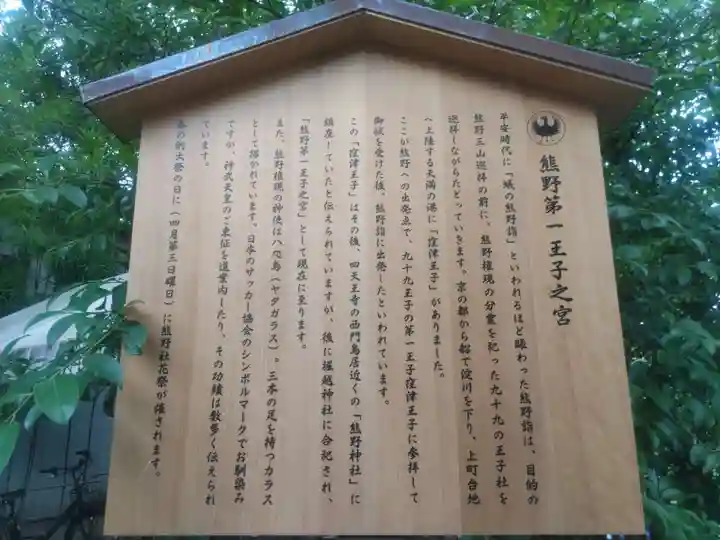 熊野第一王子之宮
平安時代に「蟻の熊野詣」といわれるほど賑わった熊野詣は、目的の
熊野三山巡拝の前に、熊野権現の分霊を祀った九十九の王子社を
巡拝しながらたどっていきます。京の都から船で淀川を下り、上町台地
へ上陸する天満の港に「窪津王子」がありました。
ここが熊野への出発点で、九十九王子の第一王子窪津王子に参拝して
御祓を受けた後、熊野詣に出発したといわれています。
この「窪津王子」はその後、四天王寺の西門鳥居近くの「熊野神社」に
鎮座していたと伝えられていますが、後に堀越神社に合祀され、
「熊野第一王子之宮」として現在に至ります。
また、熊野権現の神使は八咫烏（ヤタガラス）。三本の足を持つカラス
として描かれています。日本のサッカー協会のシンボルマークでお馴染み
ですが、神武天皇のご東征を道案内したり、その功績は数多く伝えられ
ています。
春の例大祭の日に（四月第三日曜日）に熊野社花祭が催されます。